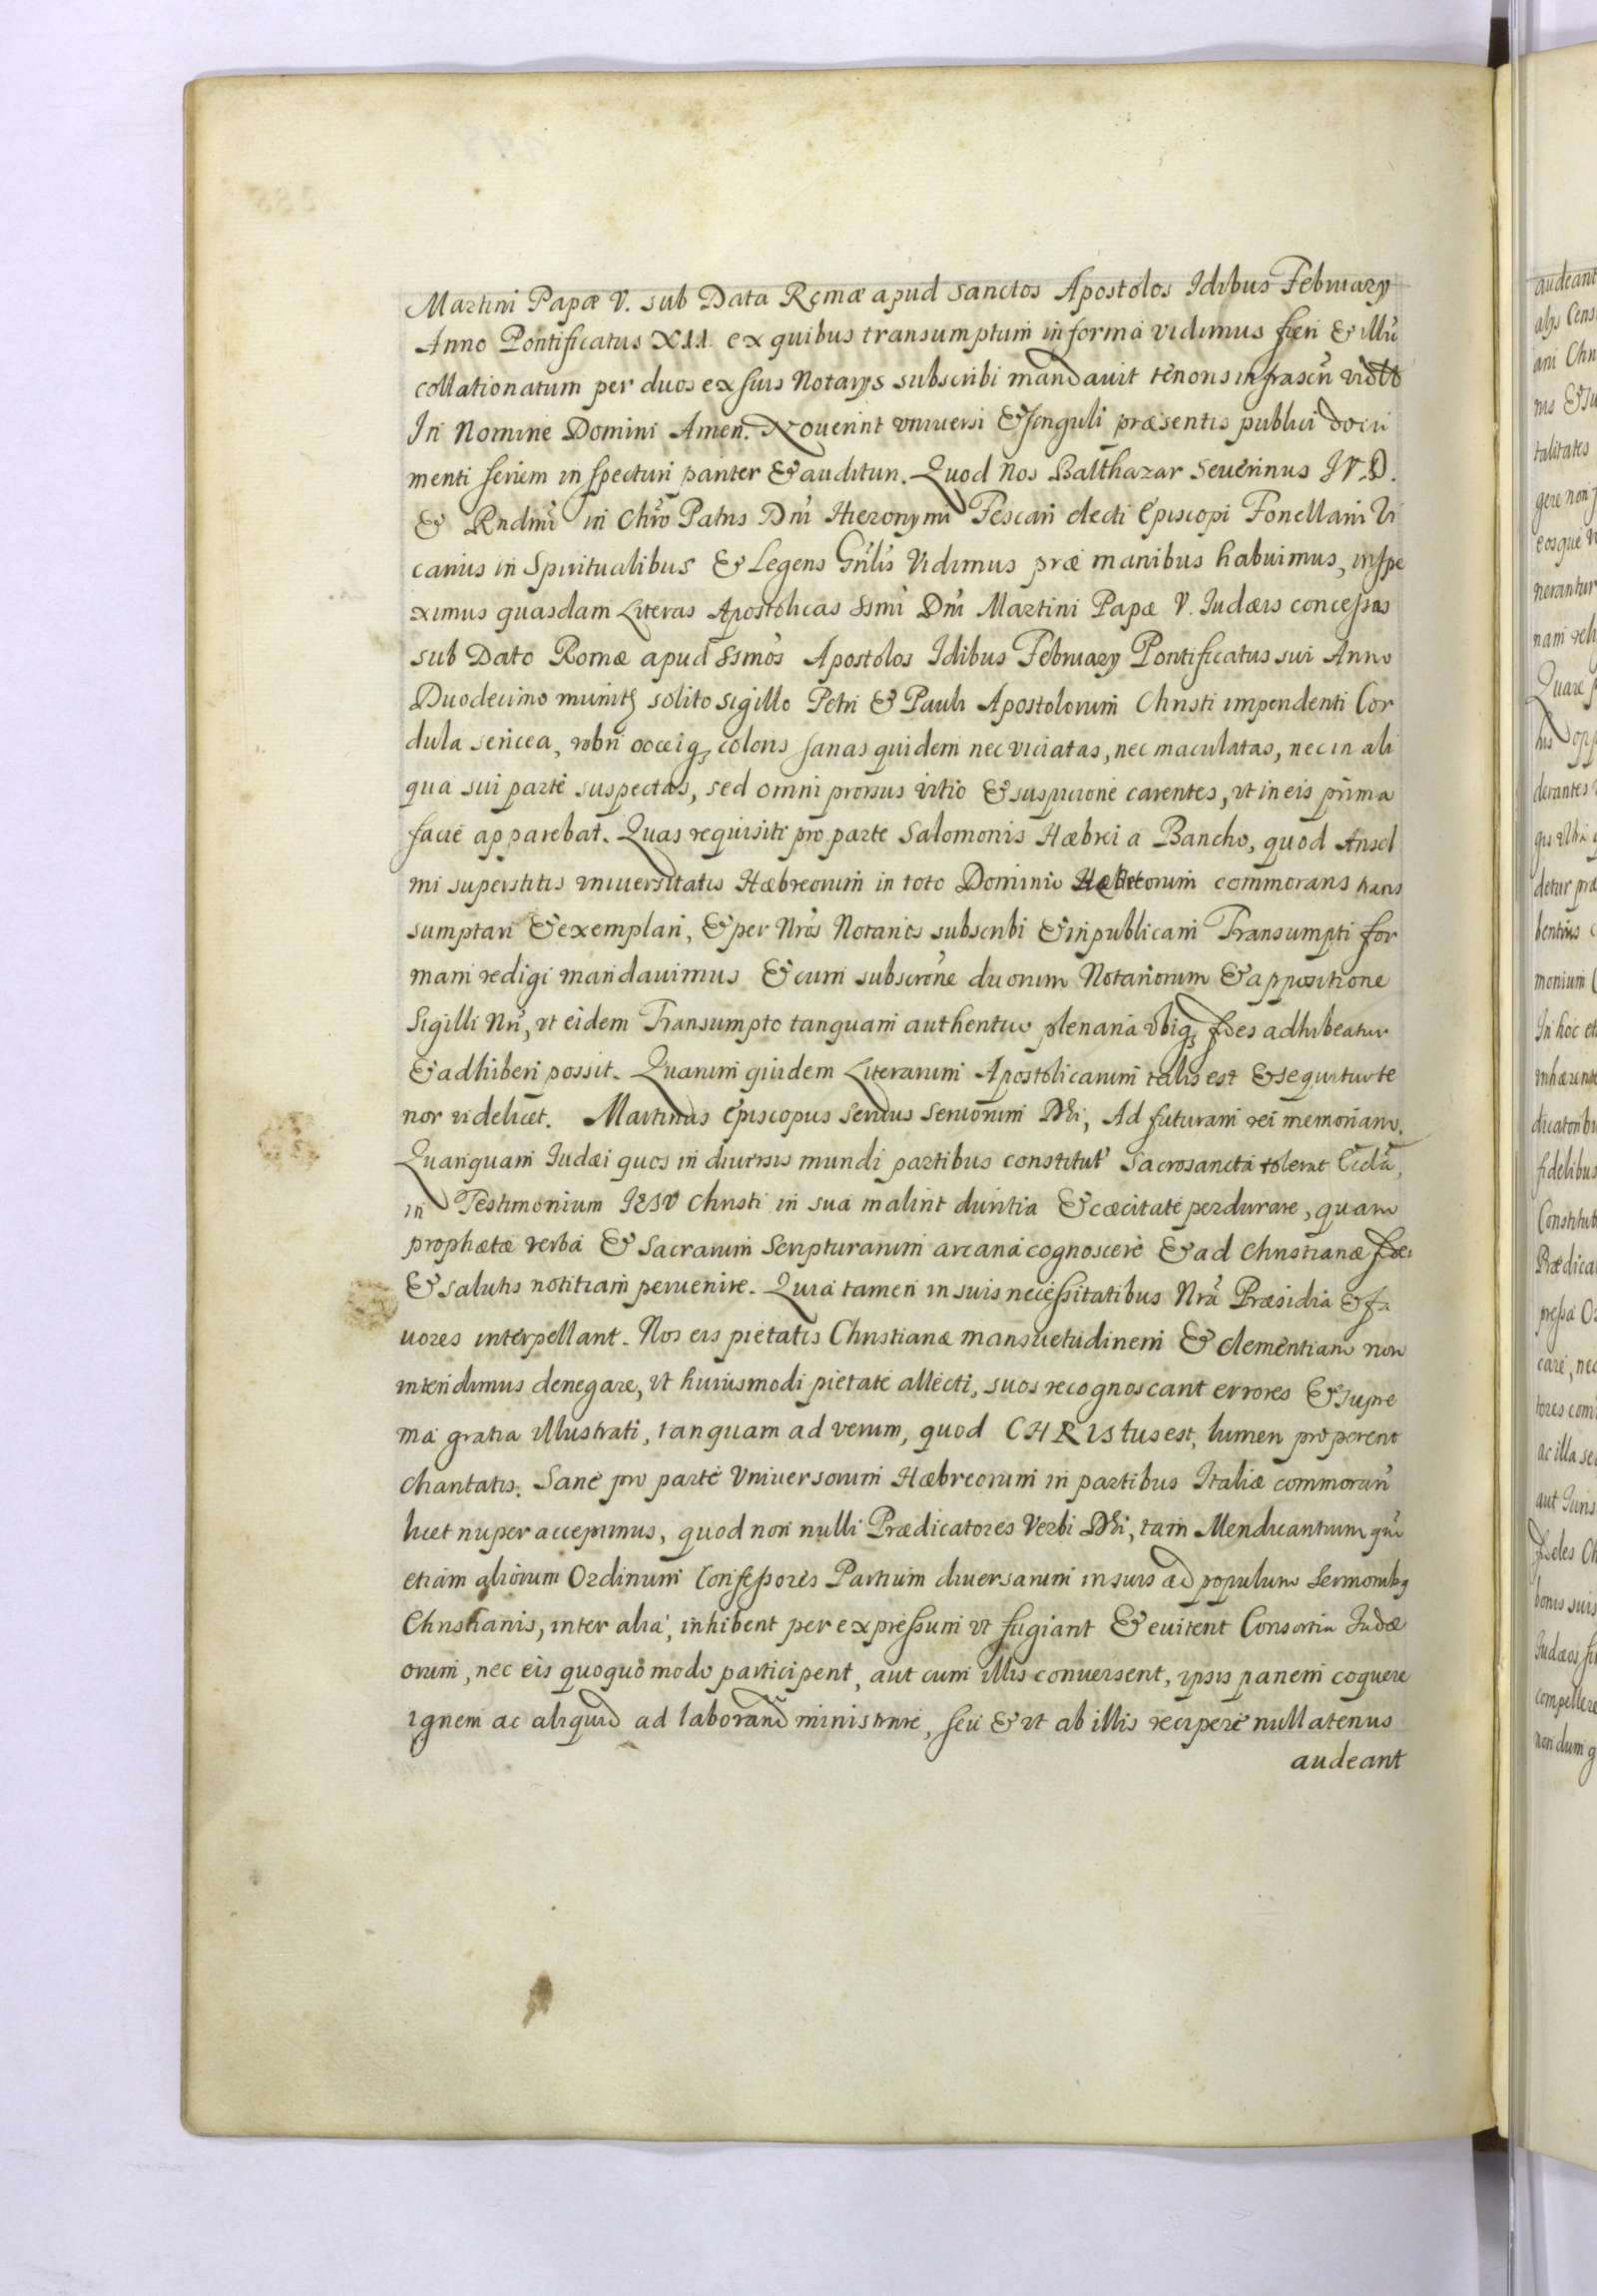 Martini Papæ V. sub Data Romæ apud Sanctos Apostolos Idibus February
Anno Pontificatus XII. ex quibus transumptum in forma vidimus fieri & illũ
collationatum per duos ex suis Notarys subscribi mandavit tenoris infrascrĩ vidłt
In Nomine Domini Amen. Noverint vniversi & singuli præsentis publici docu
menti seriem inspecturi pariter & audituri. Quod Nos Balthazar Severinus I.V.D.
& Rndmĩ in Chrõ Patris Dnĩ Hieronymi Fescari electi Episcopi Fonellani Vi
carius in Spiritualibus & Legens Gńlis Vidimus præ manibus habuimus, inspe
ximus quasdam Literas Apostolicas Ssmĩ Dnĩ Martini Papæ V. Iudæis concessas
sub Dato Romæ apud Ssmõs Apostolos Idibus February Pontificatus sui Anno
Duodecimo munitę solito sigillo Petri & Pauli Apostolorum Christi impendenti Cor
dula sericea, rubri croceiq₃ coloris sanas quidem nec viciatas, nec maculatas, nec in ali
qua sui parte suspectas, sed omni prorsus vitio & suspicione carentes, vt in eis prima
facie apparebat. Quas requisiti pro parte Salomonis Hæbrei a Bancho, quod Ansel
mi superstitis vniversitatis Hæbreorum in toto Dominio Hæbreorum commorans trans
sumptari & exemplari, & per Nrõs Notarios subscribi & in publicam Transumpti for
mam redigi mandavimus & cum subscrone duorum Notariorum & appositione
Sigilli Nrĩ, vt eidem Transumpto tanquam authentico plenaria vbiq₃ fides adhibeatur
& adhiberi possit. Quarum quidem Literarum Apostolicarum talis est & sequitur te
nor videlicet. Martinus Episcopus Servus Servorum Dei, Ad futuram rei memoriam.
Quanquam Iudæi quos in diversis mundi partibus constitut' Sacrosancta tolerat Eccla,
in Testimonium IESV Christi in sua malint duritia & cæcitate perdurare, quam
prophætæ verba & Sacrarum Scripturarum arcana cognoscere & ad Christianæ fidei
& salutis notitiam pervenire. Quia tamen in suis necessitatibus Nrã Præsidia & fa
vores interpellant. Nos eis pietatis Christianæ mansuetudinem & clementiam non
intendimus denegare, vt huiusmodi pietate allecti, suos recognoscant errores & supre
ma gratia illustrati, tanquam ad verum, quod CHRIStus est, lumen properent
charitatis. Sane pro parte Vniversorum Hæbreorum in partibus Italiæ commoran̄
licet nuper accepimus, quod non nulli Prædicatores Verbi Dei, tam Mendicantium qm̃
etiam aliorum Ordinum Confessores Partium diversarum in suis ad populum Sermonibq
Christianis, inter alia, inhibent per expressum vt fugiant & evitent Consortia Iudæ
orum, nec eis quoquo modo participent, aut cum illis conversent, ipsis panem coquere
ignem ac aliquid ad laborand̃ ministrare, seu & vt ab illis recipere nullatenus
audeant